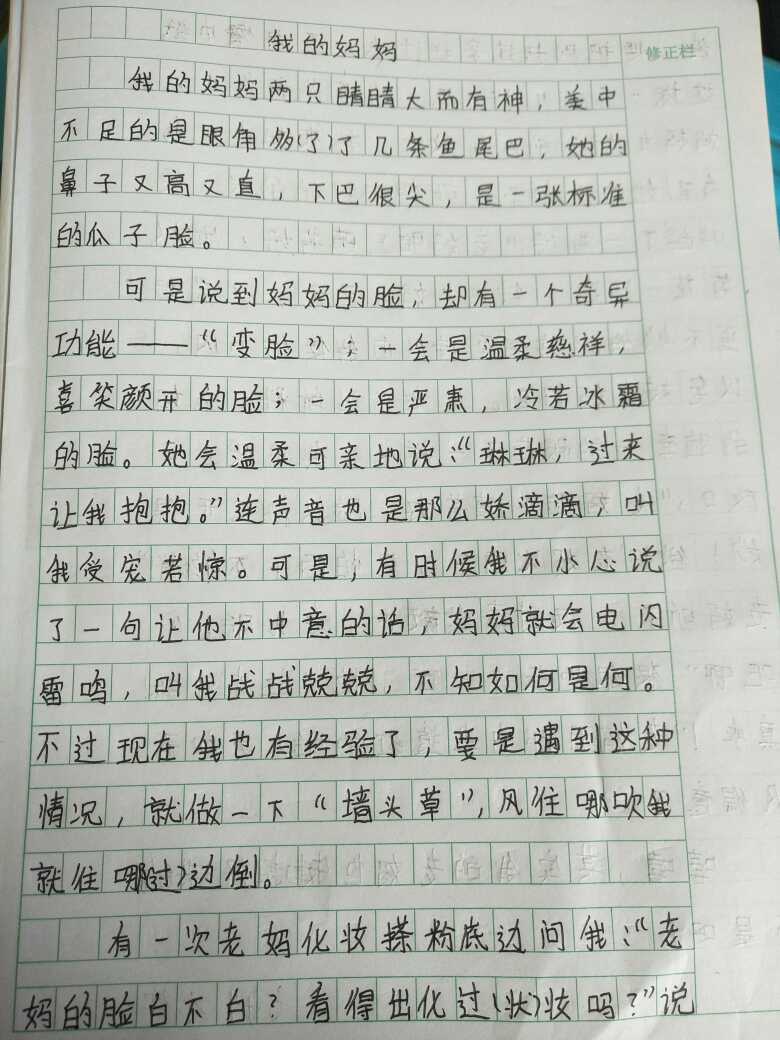 我的妈妈
修正栏
我的妈妈两只睛睛大而有神，美中
不足的是眼角多(了)了几条鱼尾巴，她的
鼻子又高又直，下巴很尖，是一张标准
的瓜子脸。
可是说到妈妈的脸，却有一个奇异
功能——“变脸”；一会是温柔慈祥，
喜笑颜开的脸；一会是严肃，冷若冰霜
的脸。她会温柔可亲地说：“琳琳，过来
让我抱抱。”连声音也是那么娇滴滴，叫
我受宠若惊。可是，有时候我不小心说
了一句让他不中意的话，妈妈就会电闪
雷鸣，叫我战战兢兢，不知如何是何。
不过现在我也有经验了，要是遇到这种
情况，就做一下“墙头草”，风住哪吹我
就住哪(过)边倒。
有一次老妈化妆搽粉底边问我：“老
妈的脸白不白？看得出化过(状)妆吗？”说